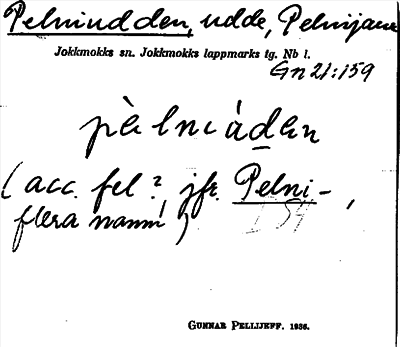 Pelniudden, udde, Pelnijaure
Jokkmokks sn. Jokkmokks lappmarks tg. Nb l.
Gn 21:159
pèlniáden
(acc. fel?, jfr. Pelni-,
flera namn)
I 54
GUNNAR PELLIJEFF. 1936.